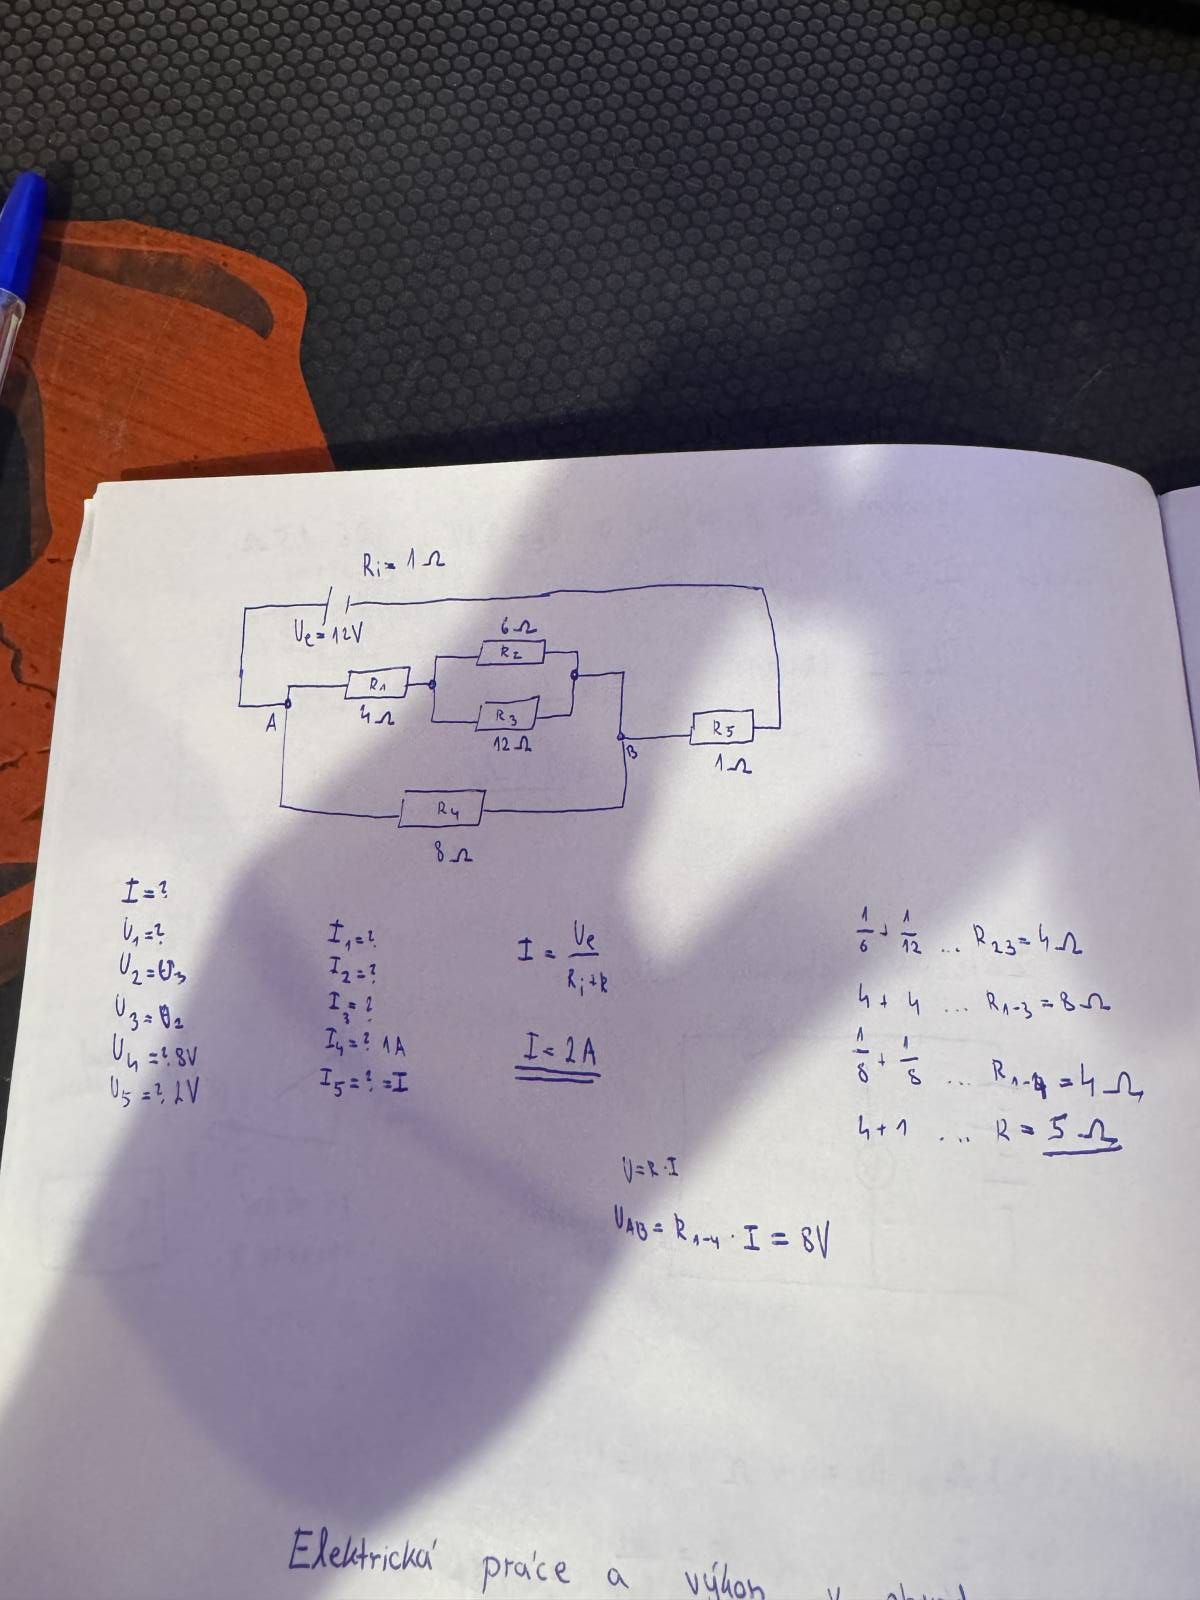 Ri = 1 Ω
Ue = 12V
6 Ω
R2
R1
4 Ω
R3
12 Ω
A
B
R5
1 Ω
R4
8 Ω
I = ?
U1 = ?
U2 = U3
U3 = U2
U4 = ? 8V
U5 = ? 2V
I1 = ?
I2 = ?
I3 = ?
I4 = ? 1A
I5 = ? = I
I = Ue / Ri + R
I = 2A
1/6 + 1/12 ... R23 = 4 Ω
4 + 4 ... R1-3 = 8 Ω
1/8 + 1/8 ... R1-4 = 4 Ω
4 + 1 ... R = 5 Ω
U = R · I
UAB = R1-4 · I = 8V
Elektrická práce a výkon v